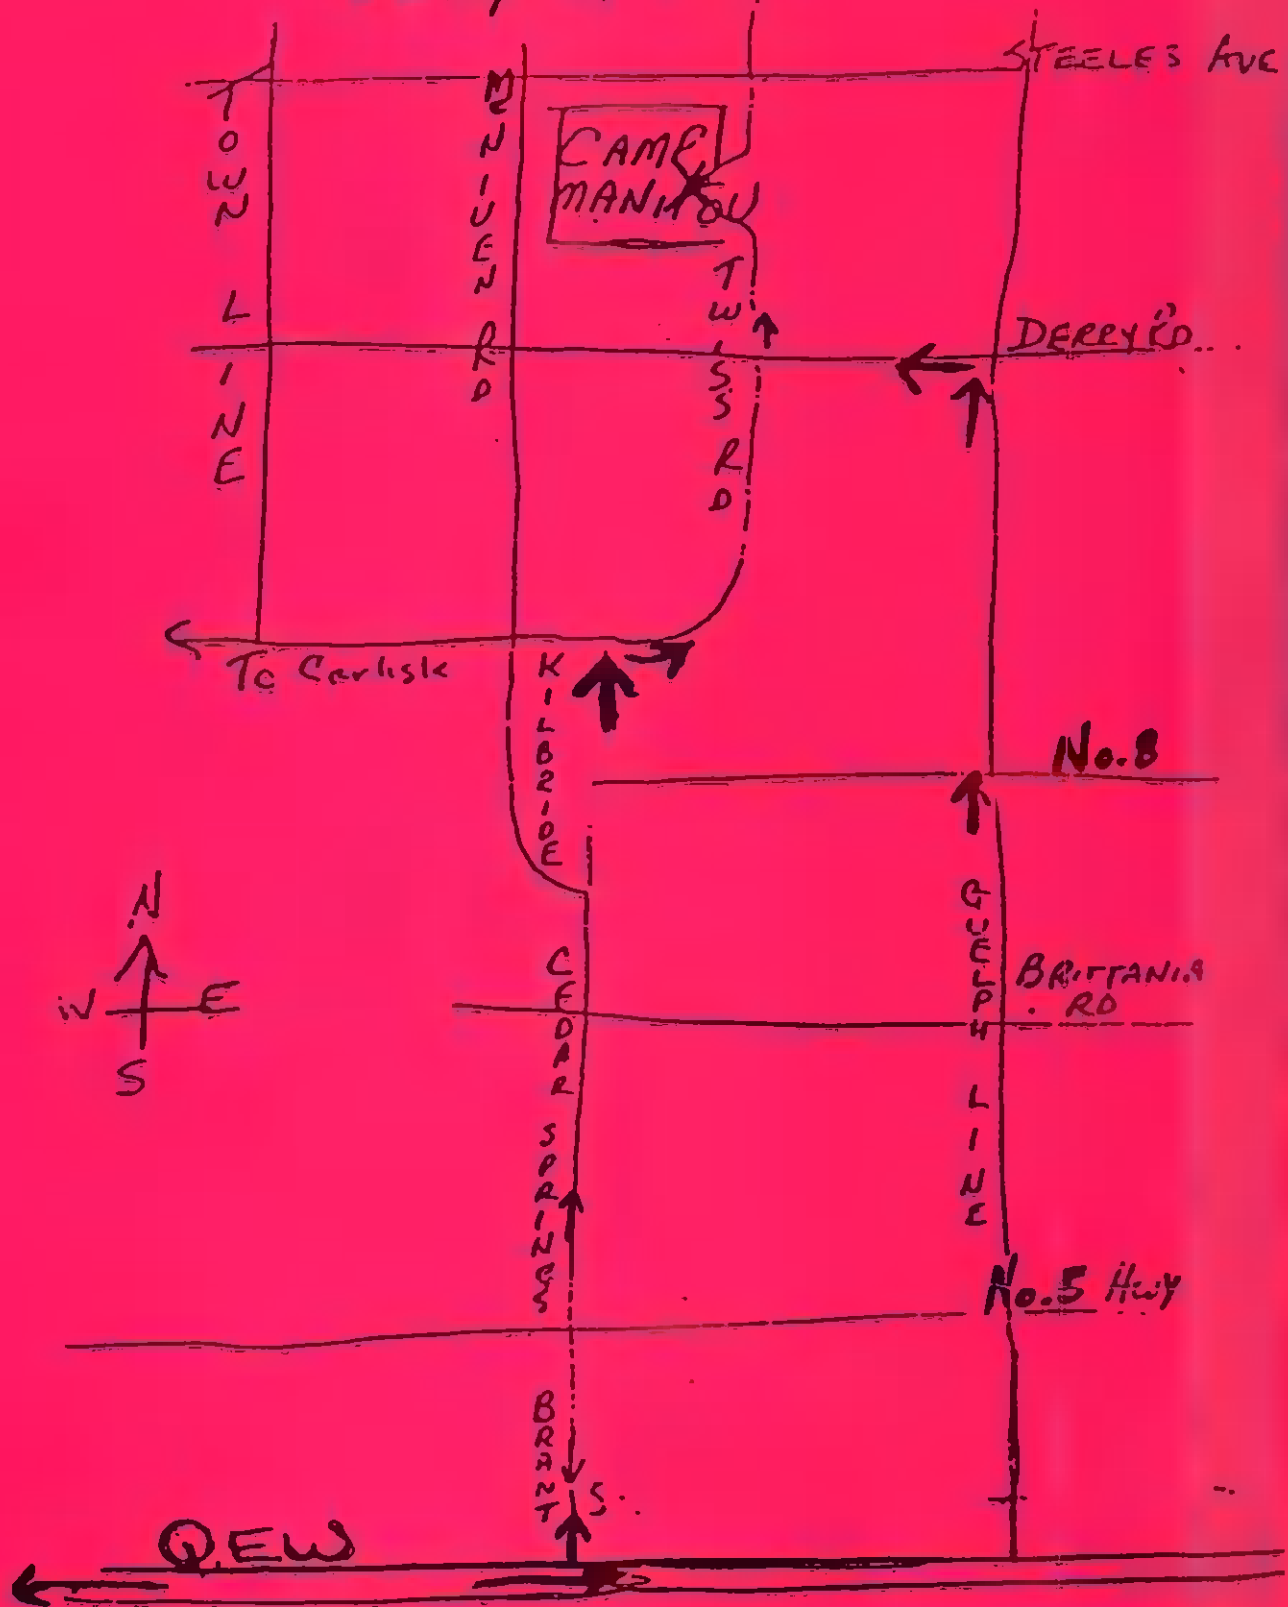 STEELES AVE
TOWN LINE
MENIVEN RD
CAMP
MANITOU
TWISS RD
DERRY RD
To Carlisk
KILBRIDE
No.8
N
W E
S
CEDAR SPRINGS
GUELPH LINE
BRITTANIA
RD
No.5 Hwy
BRANT
S.
QEW